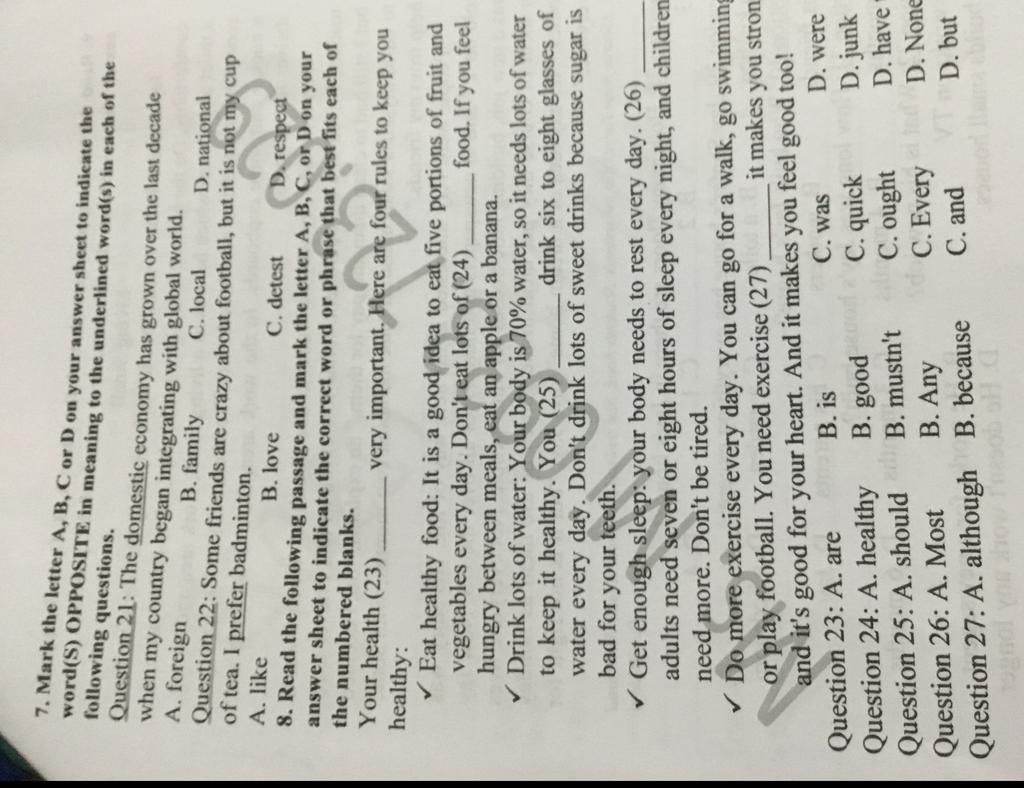 7. Mark the letter A, B, C or D on your answer sheet to indicate the
word(S) OPPOSITE in meaning to the underlined word(s) in each of the
following questions.
Question 21: The domestic economy has grown over the last decade
when my country began integrating with global world.
A. foreign B. family C. local D. national
Question 22: Some friends are crazy about football, but it is not my cup
of tea. I prefer badminton.
A. like B. love C. detest D. respect
8. Read the following passage and mark the letter A, B, C, or D on your
answer sheet to indicate the correct word or phrase that best fits each of
the numbered blanks.
Your health (23) ______ very important. Here are four rules to keep you
healthy:
✓ Eat healthy food: It is a good idea to eat five portions of fruit and
vegetables every day. Don't eat lots of (24) ______ food. If you feel
hungry between meals, eat an apple or a banana.
✓ Drink lots of water: Your body is 70% water, so it needs lots of water
to keep it healthy. You (25) ______ drink six to eight glasses of
water every day. Don't drink lots of sweet drinks because sugar is
bad for your teeth.
✓ Get enough sleep: your body needs to rest every day. (26) ______
adults need seven or eight hours of sleep every night, and children
need more. Don't be tired.
✓ Do more exercise every day. You can go for a walk, go swimming
or play football. You need exercise (27) ______ it makes you stron
and it's good for your heart. And it makes you feel good too!
Question 23: A. are B. is C. was D. were
Question 24: A. healthy B. good C. quick D. junk
Question 25: A. should B. mustn't C. ought D. have
Question 26: A. Most B. Any C. Every D. None
Question 27: A. although B. because C. and D. but